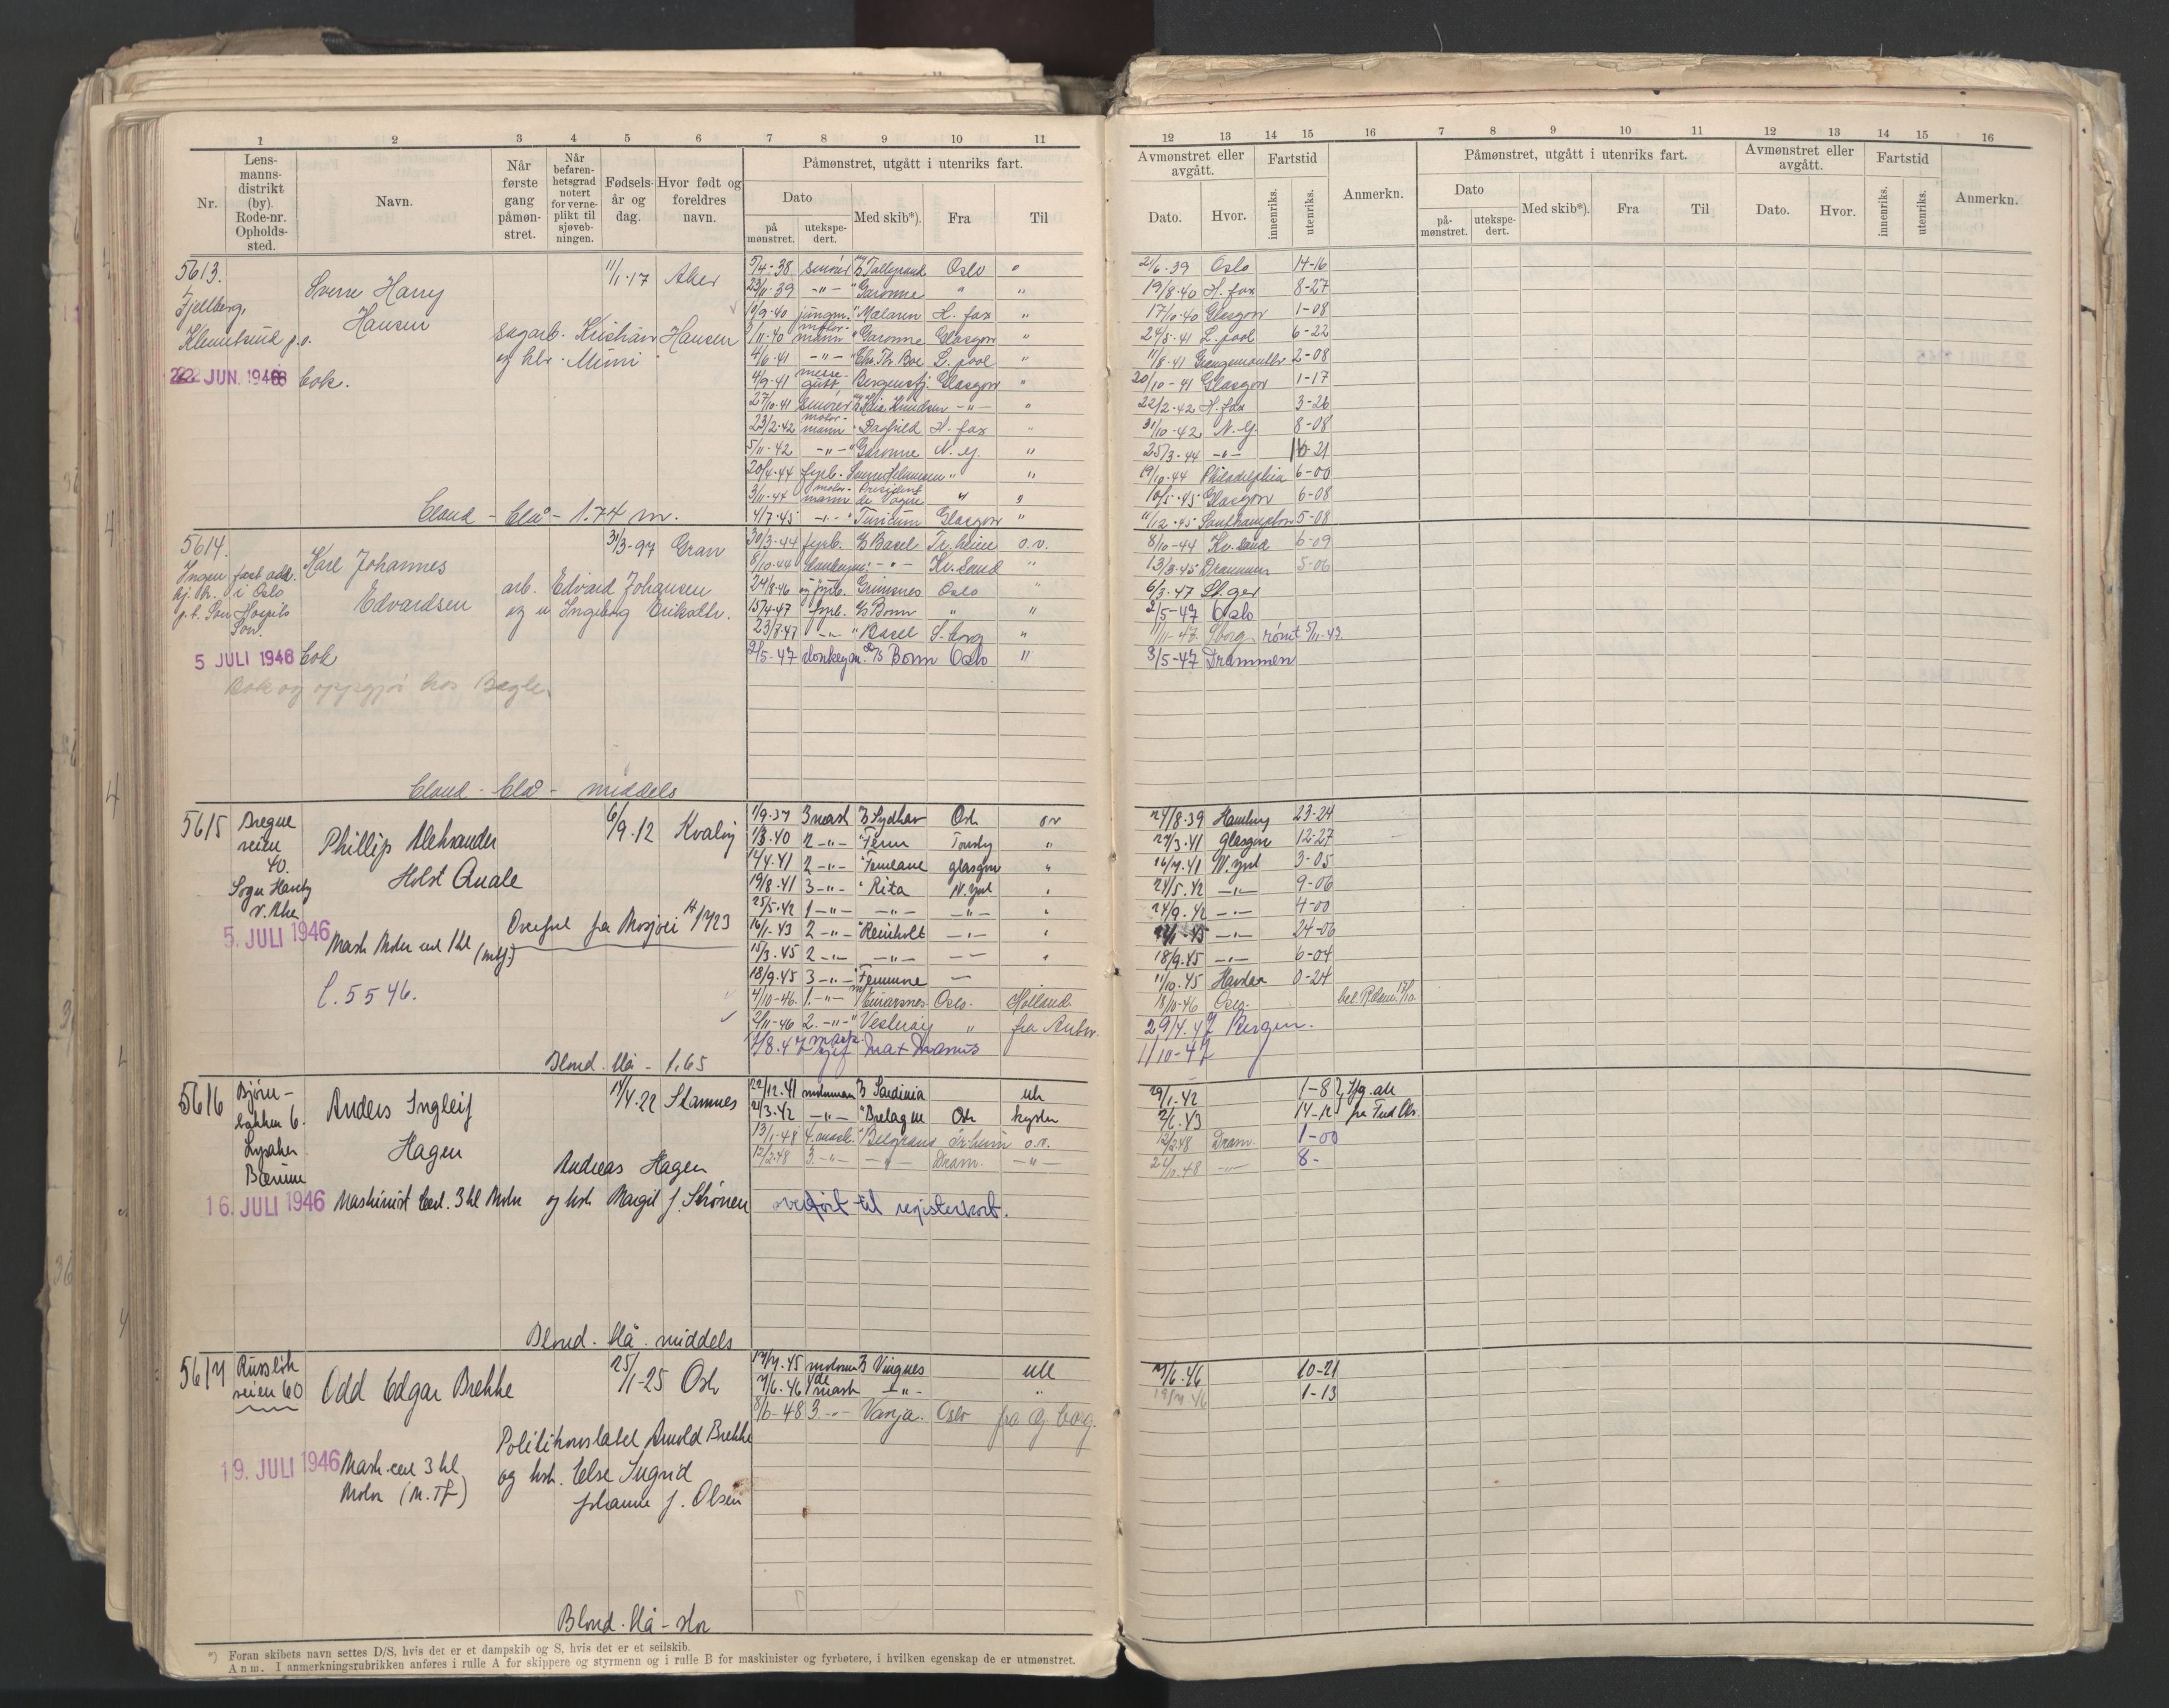 1 2 3 4 5 6 7 8 9 10 11
Nr. Lens-manns-distrikt (by). Rode-nr. Opholds-sted. Navn. Når første gang påmøn-stret. Når befaren-hetsgrad notert for verne-plikt til sjøveb-ningen. Fødsels-år og dag. Hvor født og foreldres navn. Påmønstret, utgått i utenriks fart.
Dato på mønstret. utekspe-dert. Med skib*). Fra Til
5613. 11/1-17 Aker
Fjellberg, Sverre Harry Hansen
Klemetsrud p.o. sagarb. Kristian Hansen
og htr. Mimi
22 JUN. 1946 bok.
5/4-38 smører Talleyrand Oslo "
23/11-39 -"- " Garonne " "
19/9-40 jungm. " Mälaren H. fax "
3/11-40 motor-mann " Garonne Glasgow "
4/6-41 -"- " Chr. Th. Boe L. pool "
4/9-41 messe-gutt Bergensfj. Glasgow "
27/10-41 smører Knudsen -"- "
23/2-42 motor-mann " Dagfred H. fax "
5/11-42 -"- " Garonne N.Y. "
20/4-44 fyrb. "
3/11-44 motor-mann President de Vogue " "
4/7-45 -"- " Turicum Glasgow "
bland - blå - 1.74 m.
5614. 31/3-97 Gran
Ingen fast adr. Karl Johannes
hj. h. i Oslo Edvardsen
arb. Edvard Johansen
og u Ingeborg Eriksdtr.
5 JULI 1946 bok
Bok og oppgjør hos Bøgle.
30/3-44 fyrb. Basel Tr.heim o.v.
8/10-44 -"- Kr.sand "
24/8-46 og fyrb. Grimsnes Oslo "
15/4-47 fyrb. Bonn " "
23/8-47 -"- " Basel S.borg "
2/5-47 donkeym. D/S Bonn Oslo "
bland - blå - middels
5615 6/9-12
40. Phillip Aleksander
Holst Quale
5. JULI 1946 Mask Motor 1 kl
Overført fra Mosjøen 1723
l. 5546.
1/9-37 3 mask Sydhav Oslo ov
1/3-40 2 -"- " Fenn "
14/4-41 2 -"- " glasgow "
19/8-41 3 -"- " Rita N. York "
25/5-42 1 -"- -"- -"- "
16/1-43 2 -"- " Reinholt -"- "
15/3-45 2 -"- -"- -"-
18/9-45 3 -"- -
4/10-46. 1. -"- Einarsnes Oslo. Holland
2/11-46 2. -"- " Vesterøy " fra Antw.
1/8.47 mask. sjef Max Manus
Blond. blå - 1.65
5616 Bjørn-bakken 6. Lysaker Bærum
Anders Ingleif
Hagen 14/4-22 Stamnes
Andreas Hagen
og hstr Margit f. Strønen
16. JULI 1946 Maskinist bevl. 3 kl Motor
22/12-41 motorman Sardinia utl
21/3-42 -"- " Bretagne Oslo kysten
13/1-48 4. mask. " Belgrano Tr.heim o.v.
12/2-48 3. -"- -"- Dram. -"-
overført til registerkort.
Blond. blå. middels
5617 veien 60 Odd Edgar Brekke 25/1-25 Oslo
Politikonstabel Arnold Brekke
og hstr. Else Ingrid
Johanne f. Olsen
19. JULI 1946 Mask. bevl 3 kl
Motor (M.Tf)
17/7-45 Vingnes utl
7/6-46 4de mask -"- "
8/6-48 3. -"- Vanja. Oslo fra G.borg.
Blond. blå - stor
*) Foran skibets navn settes D/S, hvis det er et dampskib og S, hvis det er et seilskib.
Anm. I anmerkningsrubrikken anføres i rulle A for skippere og styrmenn og i rulle B for maskinister og fyrbøtere, i hvilken egenskap de er utmønstret.
12 13 14 15 16 7 8 9 10 11 12 13 14 15 16
Avmønstret eller avgått. Fartstid Anmerkn. Påmønstret, utgått i utenriks fart. Avmønstret eller avgått. Fartstid Anmerkn.
Dato. Hvor. innenriks. utenriks. Dato på-mønstret. utekspe-dert. Med skib*). Fra Til Dato. Hvor. innenriks. utenriks.
21/6-39 Oslo 14-16
19/8-40 H. fax 8-27
17/10-40 Glasgow 1-08
24/5-41 L. pool 6-22
11/8-41 2-08
20/10-41 Glasgow 1-17
22/2-42 H. fax 3-26
31/10-42 N.Y. 8-08
25/3-44 -"- 16-21
19/10-44 Philadelphia 6-00
10/5-45 Glasgow 6-08
11/12-45 Southampton 5-08
8/10-44 Kr.sand 6-09
13/3-45 Drammen 5-06
6/3-47 St.ger
2/5-47 Oslo
11/11-47 S.borg rømt 5/11-47.
3/5-47 Drammen
24/8-39 Hamburg 23-24
27/3-41 glasgow 12-27
16/7-41 N. York 3-05
24/5-42 -"- 9-06
24/9-42 -"- 4-00
-"- 24-06
18/9-45 -"- 6-04
11/10-45 0-24
18/10-46 Oslo.
29/4.47 Bergen.
1/10-47
29/1-42 1-8
2/6-43 14-12
12/2-48 Dram. 1-00
24/10-48 -"- 8-
7/6-46 10-21
19/7-46 1-13